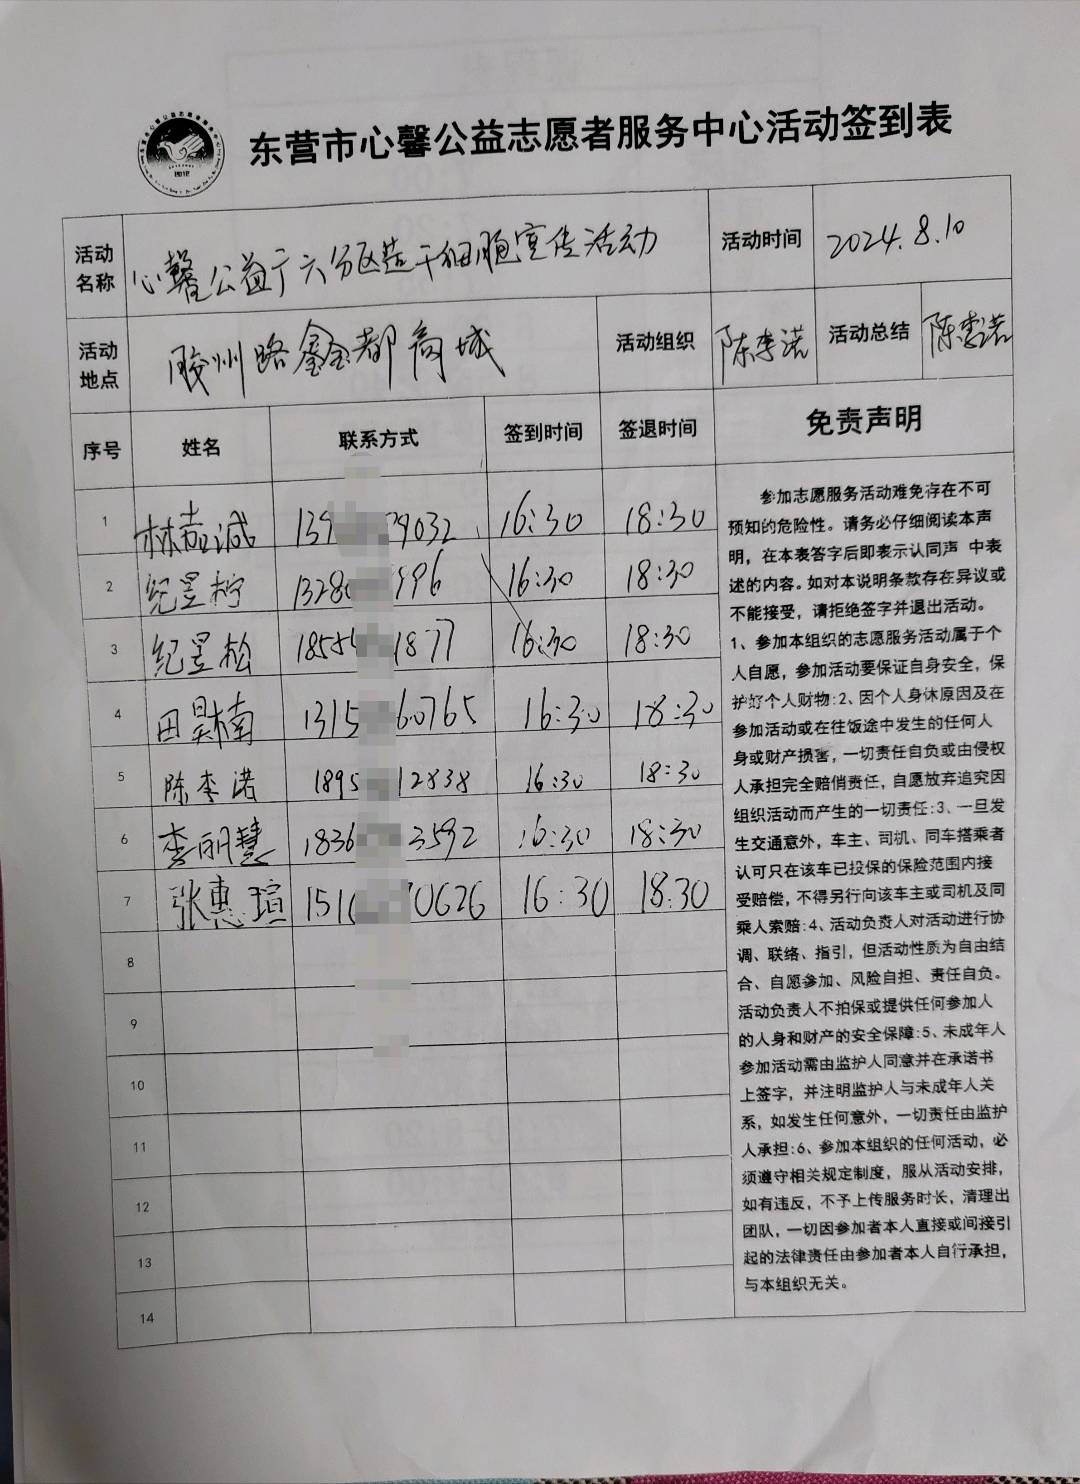 东营市心馨公益志愿者服务中心活动签到表
活动名称 心馨公益广六分区造干细胞宣传活动 活动时间 2024.8.10
活动地点 胶州路鑫都商城 活动组织 陈李诺 活动总结 陈李诺
序号 姓名 联系方式 签到时间 签退时间 免责声明
1 林喆诚 139 39032 16:30 18:30
2 纪昱柠 1328 996 16:30 18:30
3 纪昱松 1855 1877 16:30 18:30
4 田昊楠 1315 60765 16:30 18:30
5 陈李诺 1895 12838 16:30 18:30
6 李丽慧 1836 3592 16:30 18:30
7 张惠瑄 151 70626 16:30 18:30
8
9
10
11
12
13
14
参加志愿服务活动难免存在不可
预知的危险性。请务必仔细阅读本声
明，在本表签字后即表示认同声 中表
述的内容。如对本说明条款存在异议或
不能接受，请拒绝签字并退出活动。
1、参加本组织的志愿服务活动属于个
人自愿，参加活动要保证自身安全，保
护好个人财物:2、因个人身休原因及在
参加活动或在往饭途中发生的任何人
身或财产损害，一切责任自负或由侵权
人承担完全赔悄责任，自愿放弃追究因
组织活动而产生的一切责任:3、一旦发
生交通意外，车主、司机、同车搭乘者
认可只在该车已投保的保险范围内接
受赔偿，不得另行向该车主或司机及同
乘人索赔:4、活动负责人对活动进行协
调、联络、指引，但活动性质为自由结
合、自愿参加、风险自担、责任自负。
活动负责人不拍保或提供任何参加人
的人身和财产的安全保障:5、未成年人
参加活动需由监护人同意并在承诺书
上签字，并注明监护人与未成年人关
系，如发生任何意外，一切责任由监护
人承担:6、参加本组织的任何活动，必
须遵守相关规定制度，服从活动安排，
如有违反，不予上传服务时长，清理出
团队，一切因参加者本人直接或间接引
起的法律责任由参加者本人自行承担，
与本组织无关。